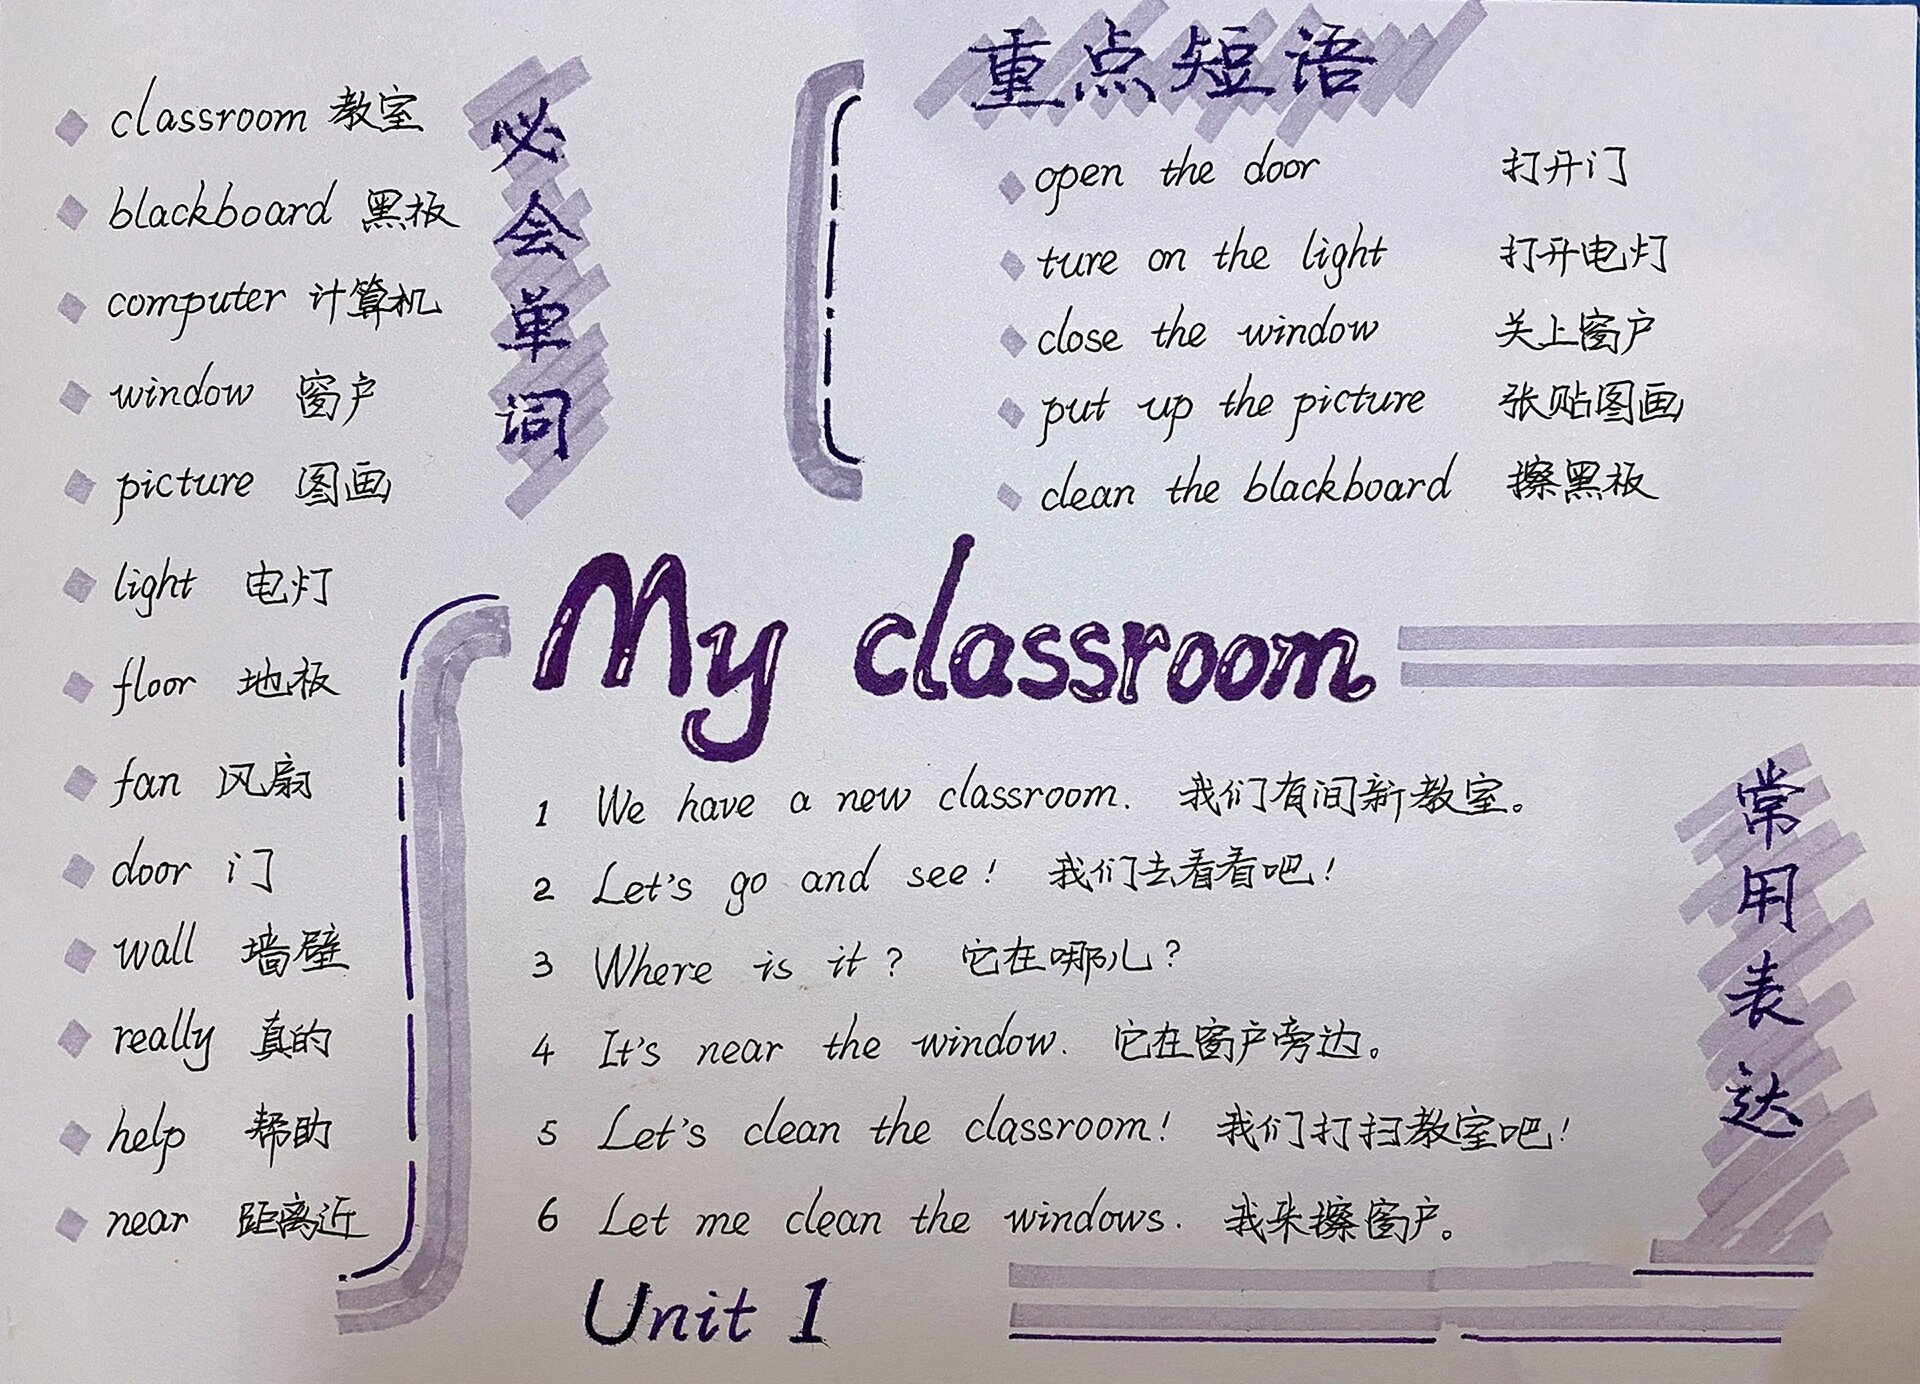 必会单词
classroom 教室
blackboard 黑板
computer 计算机
window 窗户
picture 图画
light 电灯
floor 地板
fan 风扇
door 门
wall 墙壁
really 真的
help 帮助
near 距离近
重点短语
open the door 打开门
ture on the light 打开电灯
close the window 关上窗户
put up the picture 张贴图画
clean the blackboard 擦黑板
My classroom
常用表达
1 We have a new classroom. 我们有间新教室。
2 Let's go and see! 我们去看看吧!
3 Where is it? 它在哪儿?
4 It's near the window. 它在窗户旁边。
5 Let's clean the classroom! 我们打扫教室吧!
6 Let me clean the windows. 我来擦窗户。
Unit 1